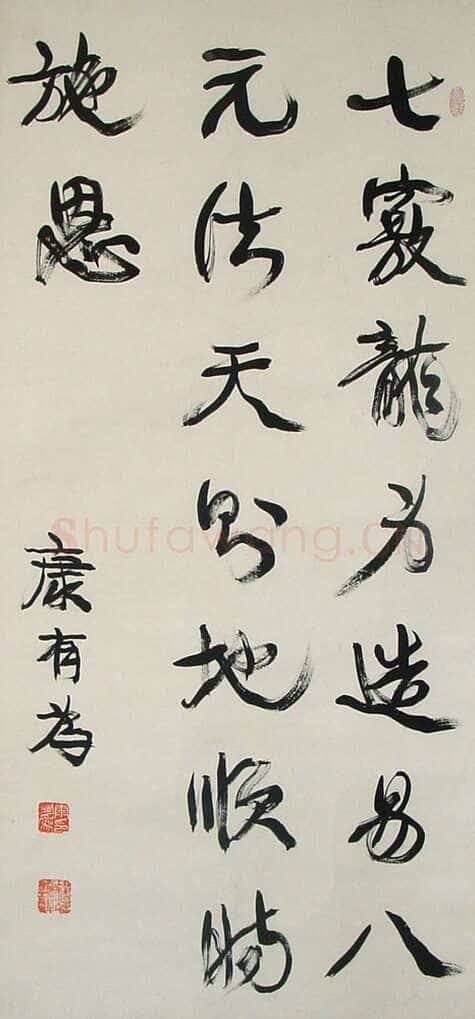 七竅龍为造易八
元法天则地順時
施恩
康有為
Shufawang.CN